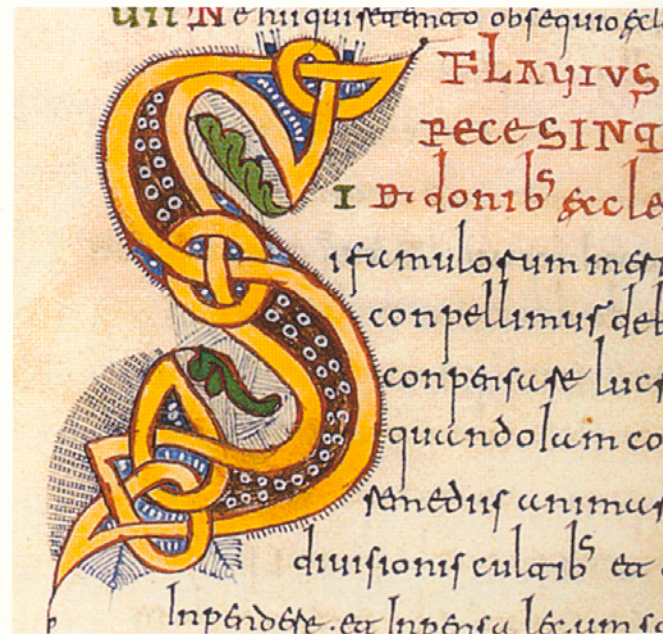 uii Ne hii qui obsequio ecle
FLAVIUS
RECESIN
I De donibs eccle
S ifamulorum meri
conpellimur deb
conpensare lucr
quandoIam co
remediis animar
diuisionis cultibs et
Inpendere · et Inpensa legum so